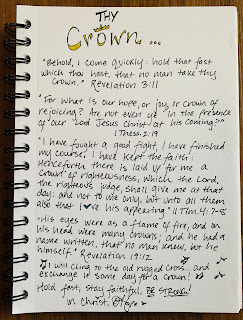 THY
Crown...
"Behold, I come quickly: hold that fast
which thou hast, that no man take thy
crown." Revelation 3:11
"For what is our hope, or joy, or crown of
rejoicing? Are not even ye in the presence
of our Lord Jesus Christ at His coming?"
I Thess. 2:19
"I have fought a good fight, I have finished
my course, I have kept the faith:
Henceforth there is laid up for me a
Crown of righteousness, which the Lord,
the righteous judge, shall give me at that
day: and not to me only, but unto all them
also that love his appearing." II Tim. 4:7-8
"His eyes were as a flame of fire, and on
his head were many crowns; and he had a
name written, that no man knew, but he
himself." Revelation 19:12
I will cling to the old rugged cross and
exchange it some day for a crown!
Hold fast, stay faithful, BE STRONG!
in Christ,